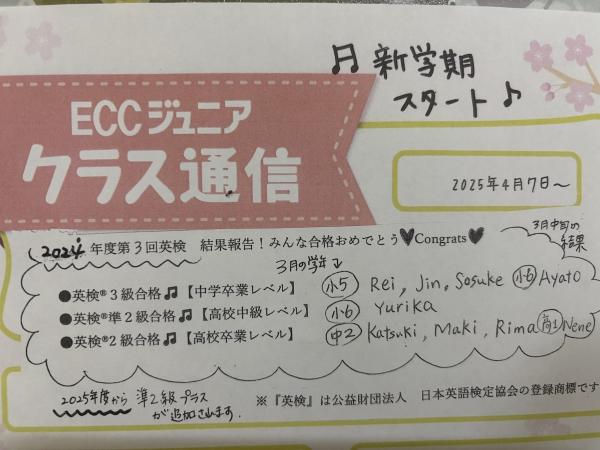 ♫ 新学期
スタート♪
ECCジュニア
クラス通信
2025年4月7日〜
3月中旬の結果
2024年度第3回英検 結果報告！みんな合格おめでとう♥Congrats♥
3月の学年↓
●英検®３級合格♫【中学卒業レベル】 小5 Rei, Jin, Sosuke 小6 Ayato
●英検®準２級合格♫【高校中級レベル】 小6 Yurika
●英検®２級合格♫【高校卒業レベル】 中2 Katsuki, Maki, Rima 高1 Nene
2025年度から 準2級プラス
が追加されます.
※『英検』は公益財団法人 日本英語検定協会の登録商標です